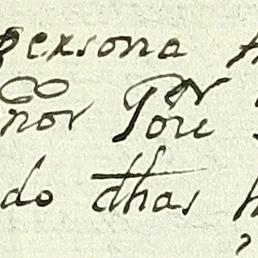 persona
nor Pore
do dhas